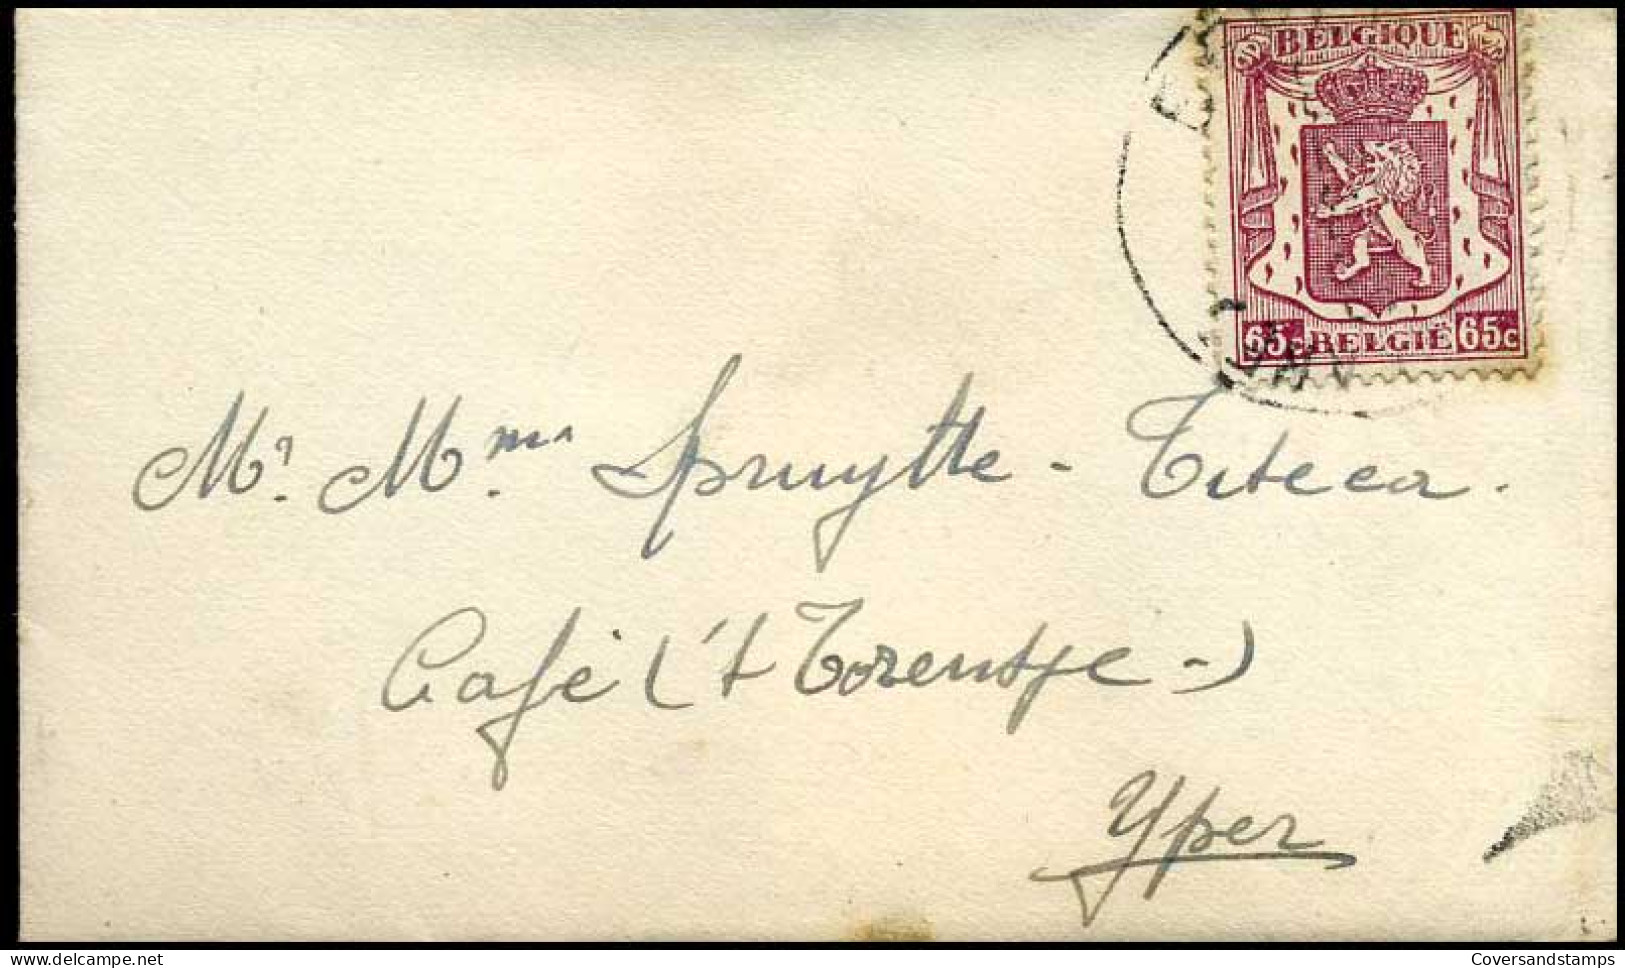 BELGIQUE
65c BELGIË 65c
Mr. Mme Spruytte - Titeca.
Café ('t Torentje -)
Yper
www.delcampe.net
Coversandstamps